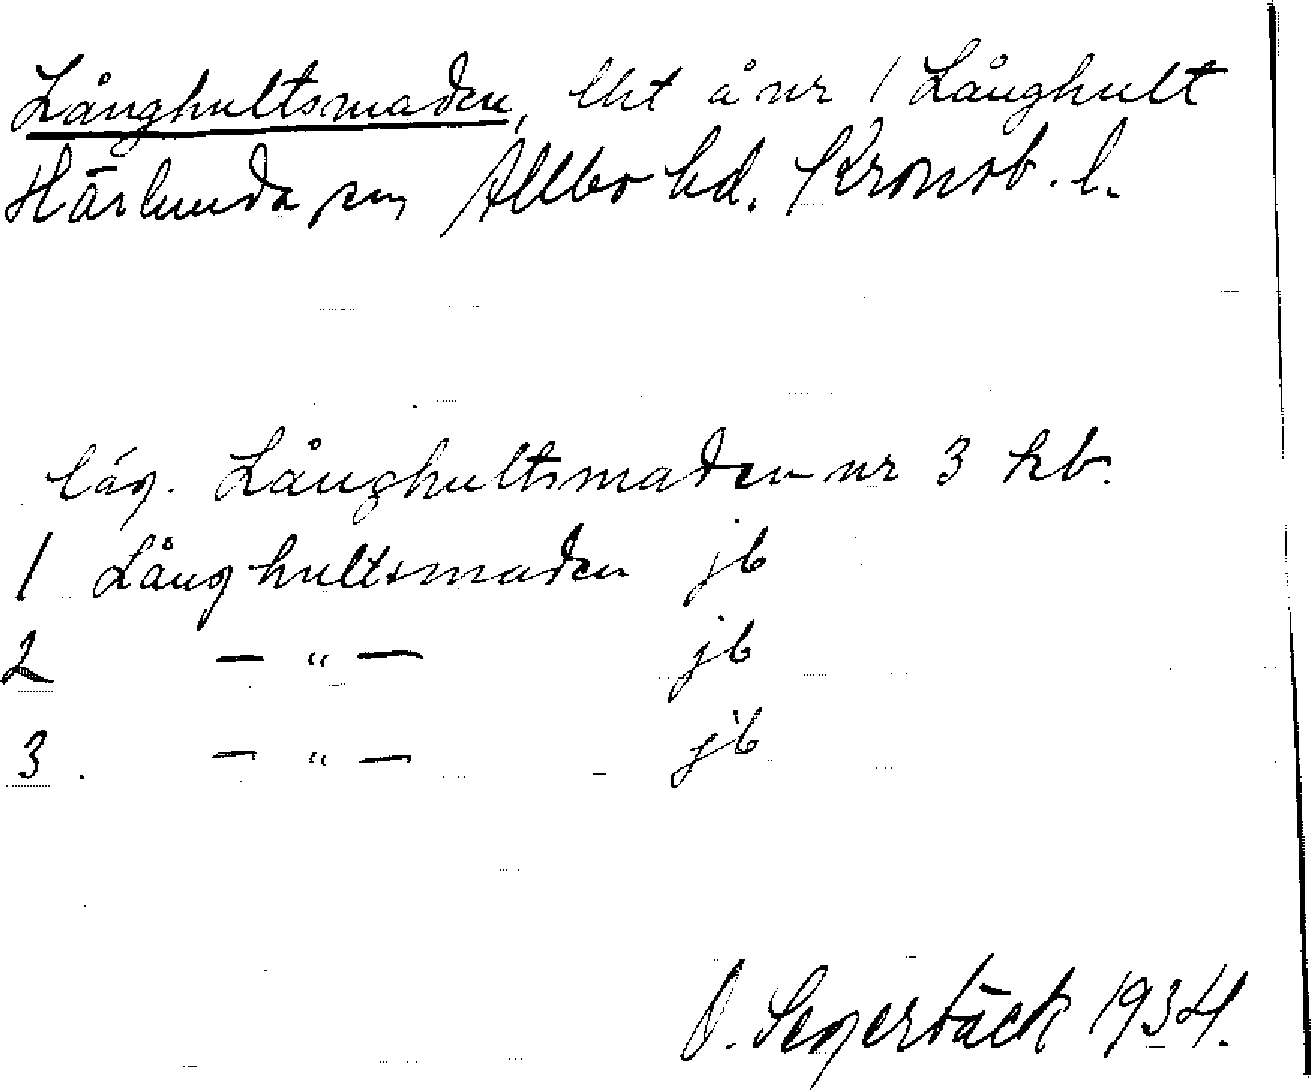 Långhultsmaden, lht å nr 1 Långhult
Härlunda sn, Allbo hd. Kronob. l.
låg. Långhultsmaden nr 3 kb.
1 Långhultsmaden jb
2 — " — jb
3. — " — jb
O. Segerbäck 1934.